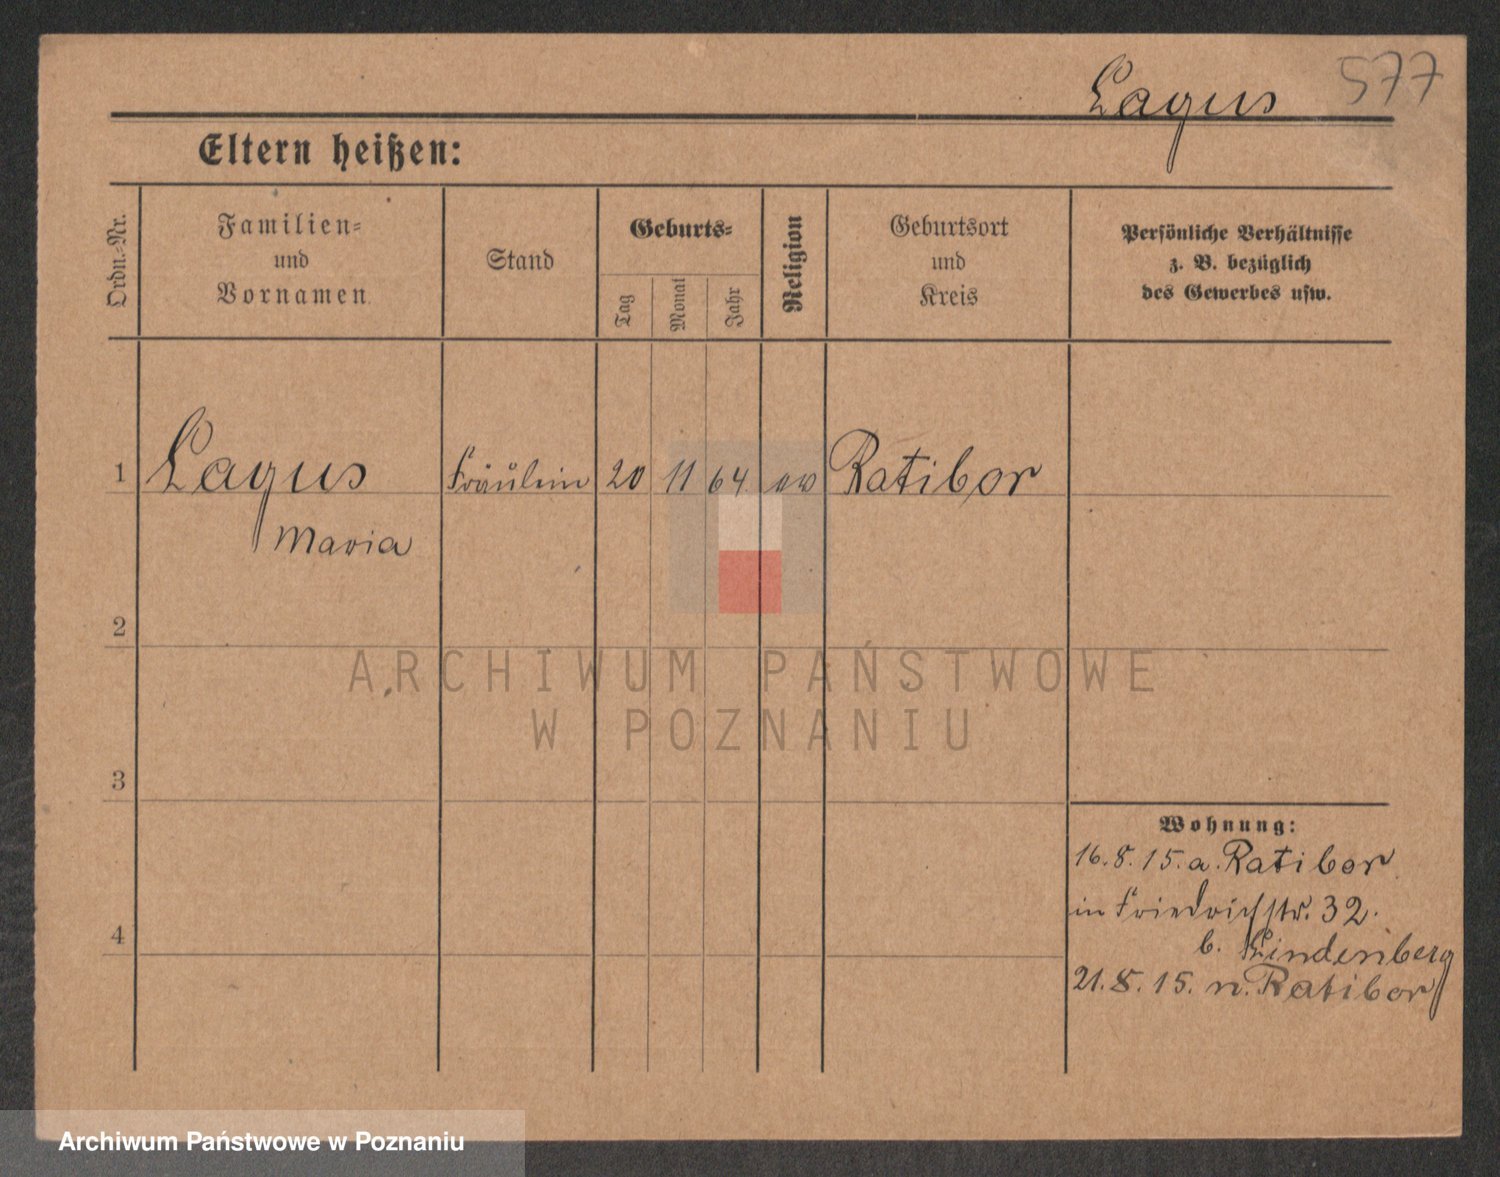 Lagus 577
Eltern heißen:
Ordn.-Nr.
Familien-
und
Vornamen
Stand
Geburts-
Tag
Monat
Jahr
Religion
Geburtsort
und
Kreis
Persönliche Verhältnisse
z. B. bezüglich
des Gewerbes usw.
1 Lagus Fräulein 20 11 64 ev Ratibor
Maria
2
ARCHIWUM PAŃSTWOWE
W POZNANIU
3
Wohnung:
16.8.15. a. Ratibor
in Friedrichstr. 32.
4
b. Lindenberg
21.8.15. n. Ratibor
Archiwum Państwowe w Poznaniu